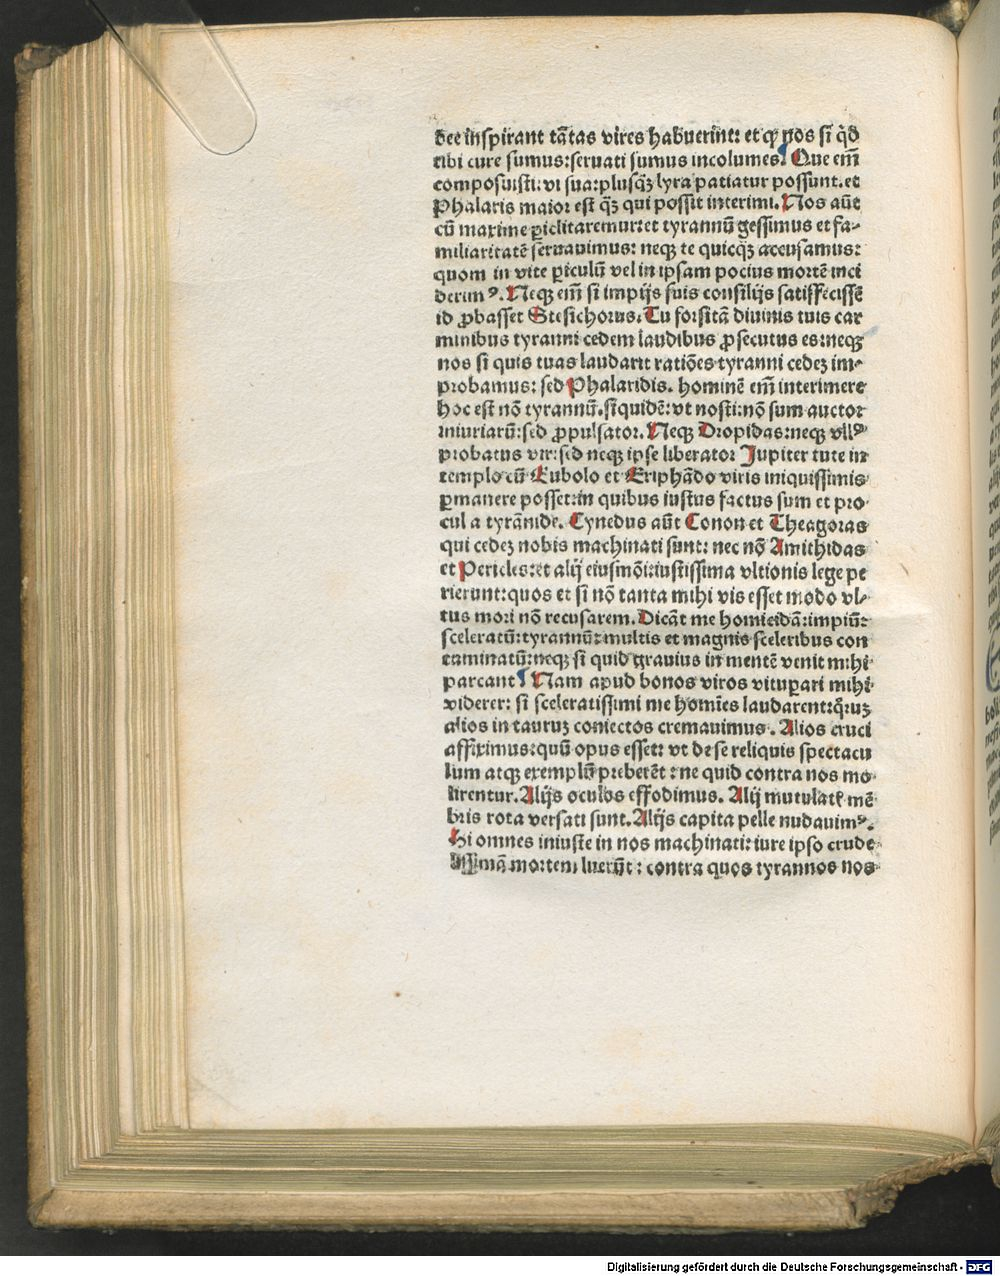 dee inspirant tātas vires habuerint: et ꝙ nos si q̄d
tibi cure sumus: seruati sumus incolumes. Que em̄
composuisti: vi sua: plusq̄ꝫ lyra patiatur possunt. et
Phalaris maior est q̄ꝫ qui possit interimi. Nos aūt
cū maxime ꝑiclitaremur: et tyrannū gessimus et fa-
miliaritatē seruauimus: neqꝫ te quicq̄ꝫ accusamus:
quom in vite ꝑiculū vel in ipsam pocius mortē inci
derimꝰ. Neqꝫ em̄ si impijs suis consilijs satiffecissē
id ꝓbasset Stesichorus. Tu forsitā diuinis tuis car
minibus tyranni cedem laudibus ꝓsecutus es: neqꝫ
nos si quis tuas laudarit ratiōes tyranni cedeꝫ im-
probamus: sed Phalaridis. hominē em̄ interimere
hoc est nō tyrannū. siquidē: vt nosti: nō sum auctor
iniuriarū: sed ꝓpulsator. Neqꝫ Dropidas: neqꝫ vllꝰ
probatus vir: sed neqꝫ ipse liberator Jupiter tute in
templo cū Eubolo et Eriphādo viris iniquissimis
ꝑmanere posset: in quibus iustus factus sum et pro-
cul a tyrānide. Cynedus aūt Conon et Theagoras
qui cedeꝫ nobis machinati sunt: nec nō Amithidas
et Pericles: et alij eiusmōi: iustissima vltionis lege pe
rierunt: quos et si nō tanta mihi vis esset modo vl-
tus mori nō recusarem. Dicāt me homicidā: impiū:
sceleratū: tyrannū: multis et magnis sceleribus con
taminatū: neqꝫ si quid grauius in mentē venit mihi
parcant Nam apud bonos viros vituꝑari mihi
viderer: si sceleratissimi me homīes laudarent: q̄ruꝫ
alios in tauruꝫ coniectos cremauimus. Alios cruci
affiximus: quū opus esset: vt de se reliquis spectacu
lum atqꝫ exemplū preberēt: ne quid contra nos mo-
lirentur. Alijs oculos effodimus. Alij mutulati mē
bris rota versati sunt. Alijs capita pelle nudauimꝰ.
Hi omnes iniuste in nos machinati: iure ipso crude
lissimā mortem luerūt: contra quos tyrannos nos
Digitalisierung gefördert durch die Deutsche Forschungsgemeinschaft - DFG